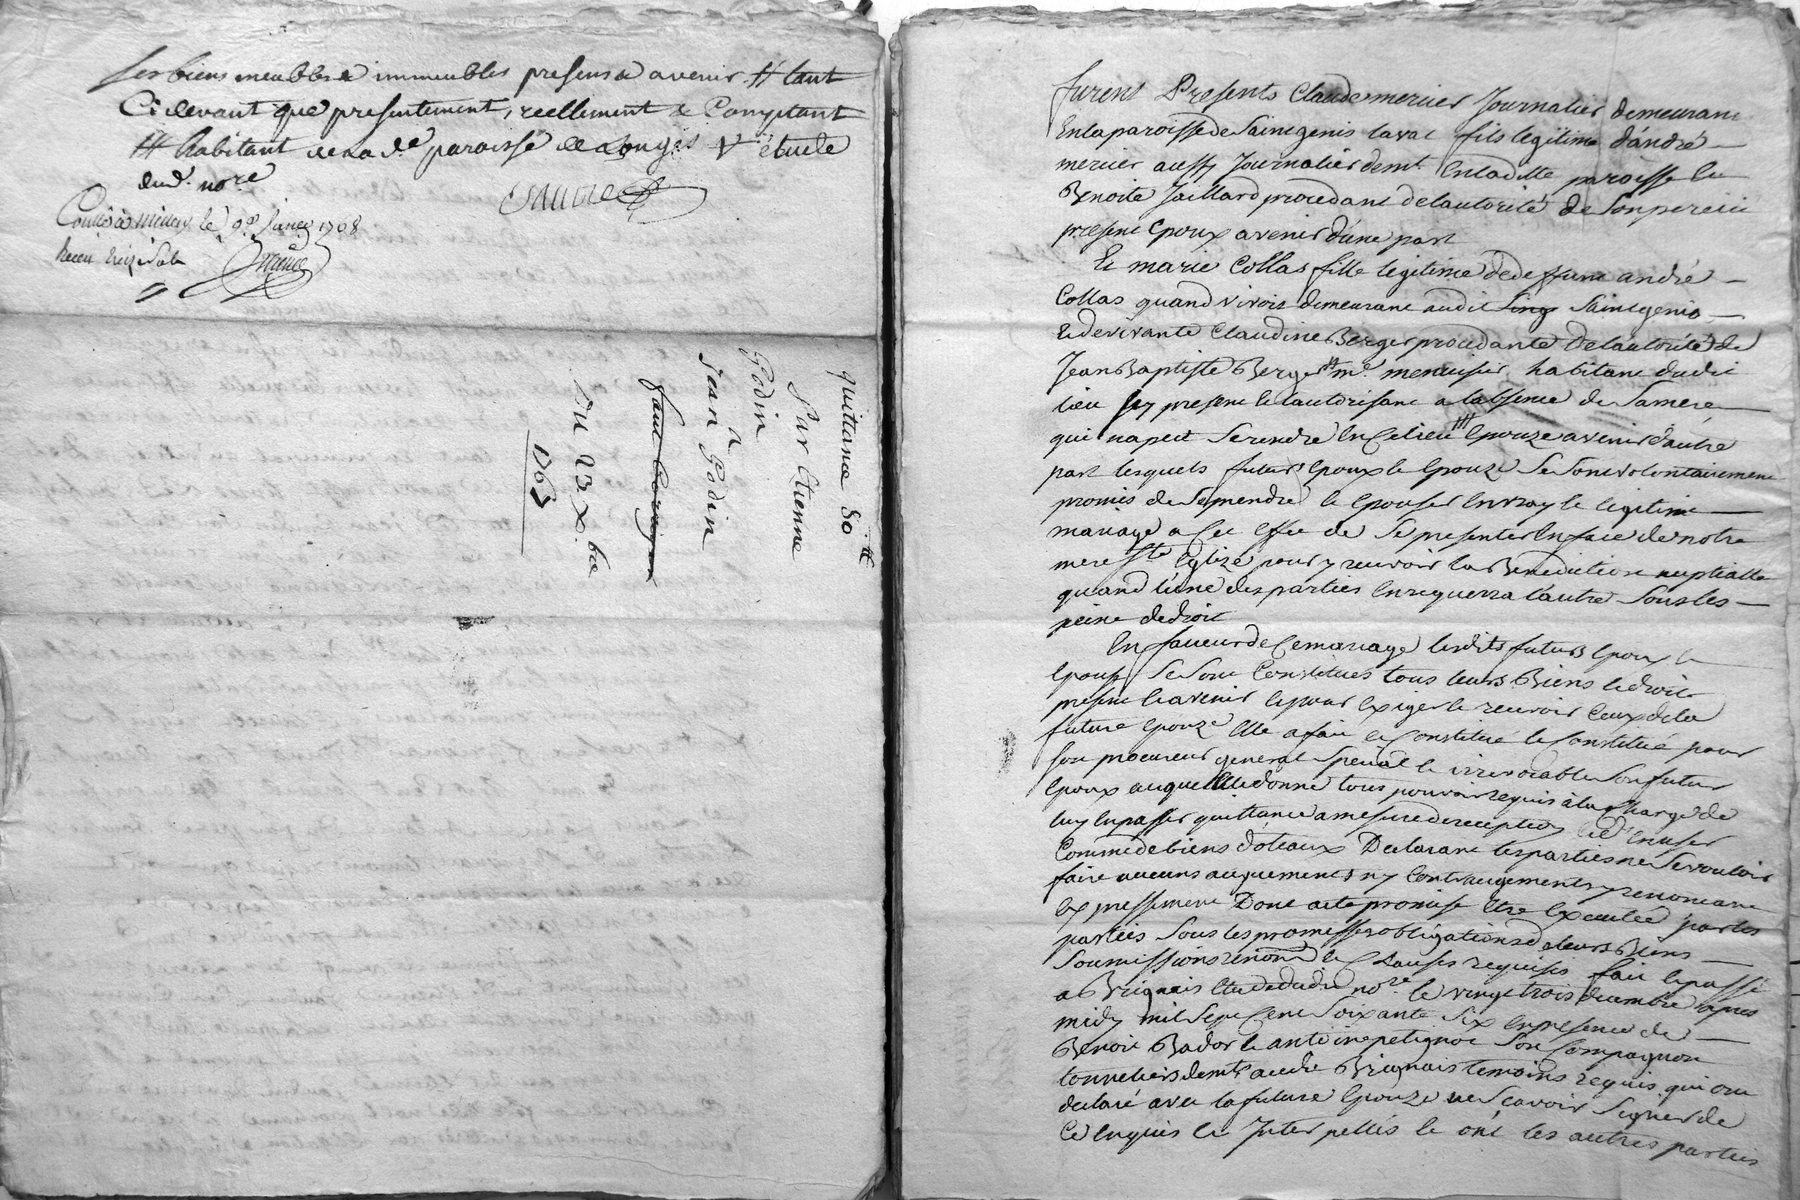 ses biens meubles & immeubles presens & avenir # tant
Ci devant que presentement, reellement & Comptant
# habitant de la d.e paroisse de Longes V etude
dud. no.re
le 9e Janer 1768
Recu treize sols
quittance 80 tt
Par Etienne
Godin
a
Jean Godin
Du 23 xbre
1767
furent Presents Claude mercier Journalier demeurant
En la paroisse de Saint genis laval fils legitime d'andré
mercier aussy Journalier demt. En laditte paroisse Et
Benoite Jaillard procedant de l'autorité de Son pere icy
present Epoux avenir d'une part
Et marie Collas fille legitime de deffunt andré
Collas quand vivoit demeurant audit Saint genis
Et de vivante Claudine Berger procedante De l'autorité de
Jean Baptiste Berger # me. menuisier habitant dudit
lieu icy present Et l'autorisant a l'absence de Sa mere
qui na peut Se rendre En Ce lieu ### Epouze avenir d'autre
part lesquels futurs Epoux Et Epouze Se Sont volontairement
promis de Se prendre Et Epouser En vray Et legitime
mariage a Cet Effet de Se presenter En face de notre
mere Ste. Eglize pour y recevoir la Benediction nuptialle
quand l'une des parties En requerra l'autre Sous les
peine de droit
En faveur de Ce mariage lesdits futurs Epoux Et
Epouze Se Sont Constitués tous leurs Biens Et droits
present Et avenir Et pour Exiger Et recevoir Ceux de la
future Epouze Elle a fait Et Constitué Et Constitue pour
Son procureur general Special Et irrevocable Son futur
Epoux auquel Elle donne tous pouvoir requis à la Charge de
luy En passer quittance a mesure de reception Et d'En user
Comme de biens doteaux Declarant les parties ne Se vouloir
faire aucuns augments ny Contraugements y renoncant
Expressement Dont acte promise Etre Executée par les
parties Sous les promesses obligations de leurs Biens
Soumissions renond. Et Clauses requises fait Et passé
a Brignais Etude dudit nore. le vingt trois decembre apres
midy mil Sept Cent Soixante Six En presence de
Benoit Bador Et antoine petignot Son Compagnon
tonneliers demts. audit Brignais temoins requis qui ont
declaré avec la future Epouze ne Scavoir Signer de
Ce Enquis Et Interpellés Et ont les autres parties